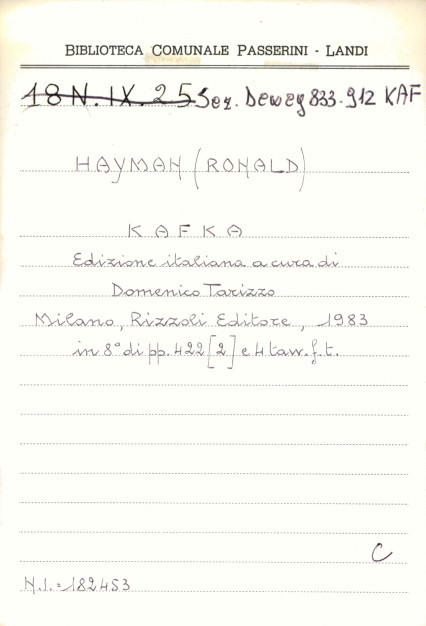 BIBLIOTECA COMUNALE PASSERINI - LANDI
18 N. IX. 25 Sez. Dewey 833.912 KAF
HAYMAN (RONALD)
KAFKA
Edizione italiana a cura di
Domenico Tarizzo
Milano, Rizzoli Editore, 1983
in 8° di pp. 422 [2] e 4 tavv. f.t.
C
N.I. = 182453